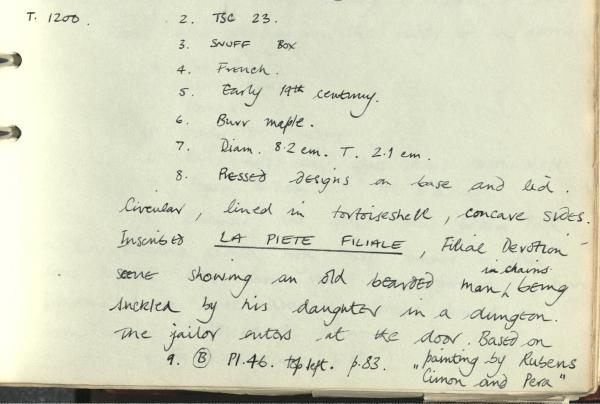 T. 1200. 2. TSC 23.
3. SNUFF BOX
4. French.
5. Early 19th century.
6. Burr maple.
7. Diam. 8.2 cm. T. 2.1 cm.
8. Pressed designs on base and lid.
Circular, lined in tortoiseshell, concave sides.
Inscribed LA PIETE FILIALE, Filial Devotion -
scene showing an old bearded man in chains, being
suckled by his daughter in a dungeon.
The jailor enters at the door. Based on
9. (B) Pl. 46. top left. p. 83. "painting by Rubens
Cimon and Pera"